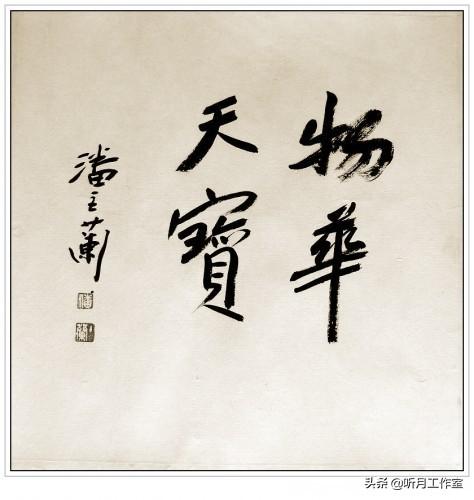 物華
天寶
潘主蘭
头条 @听月工作室